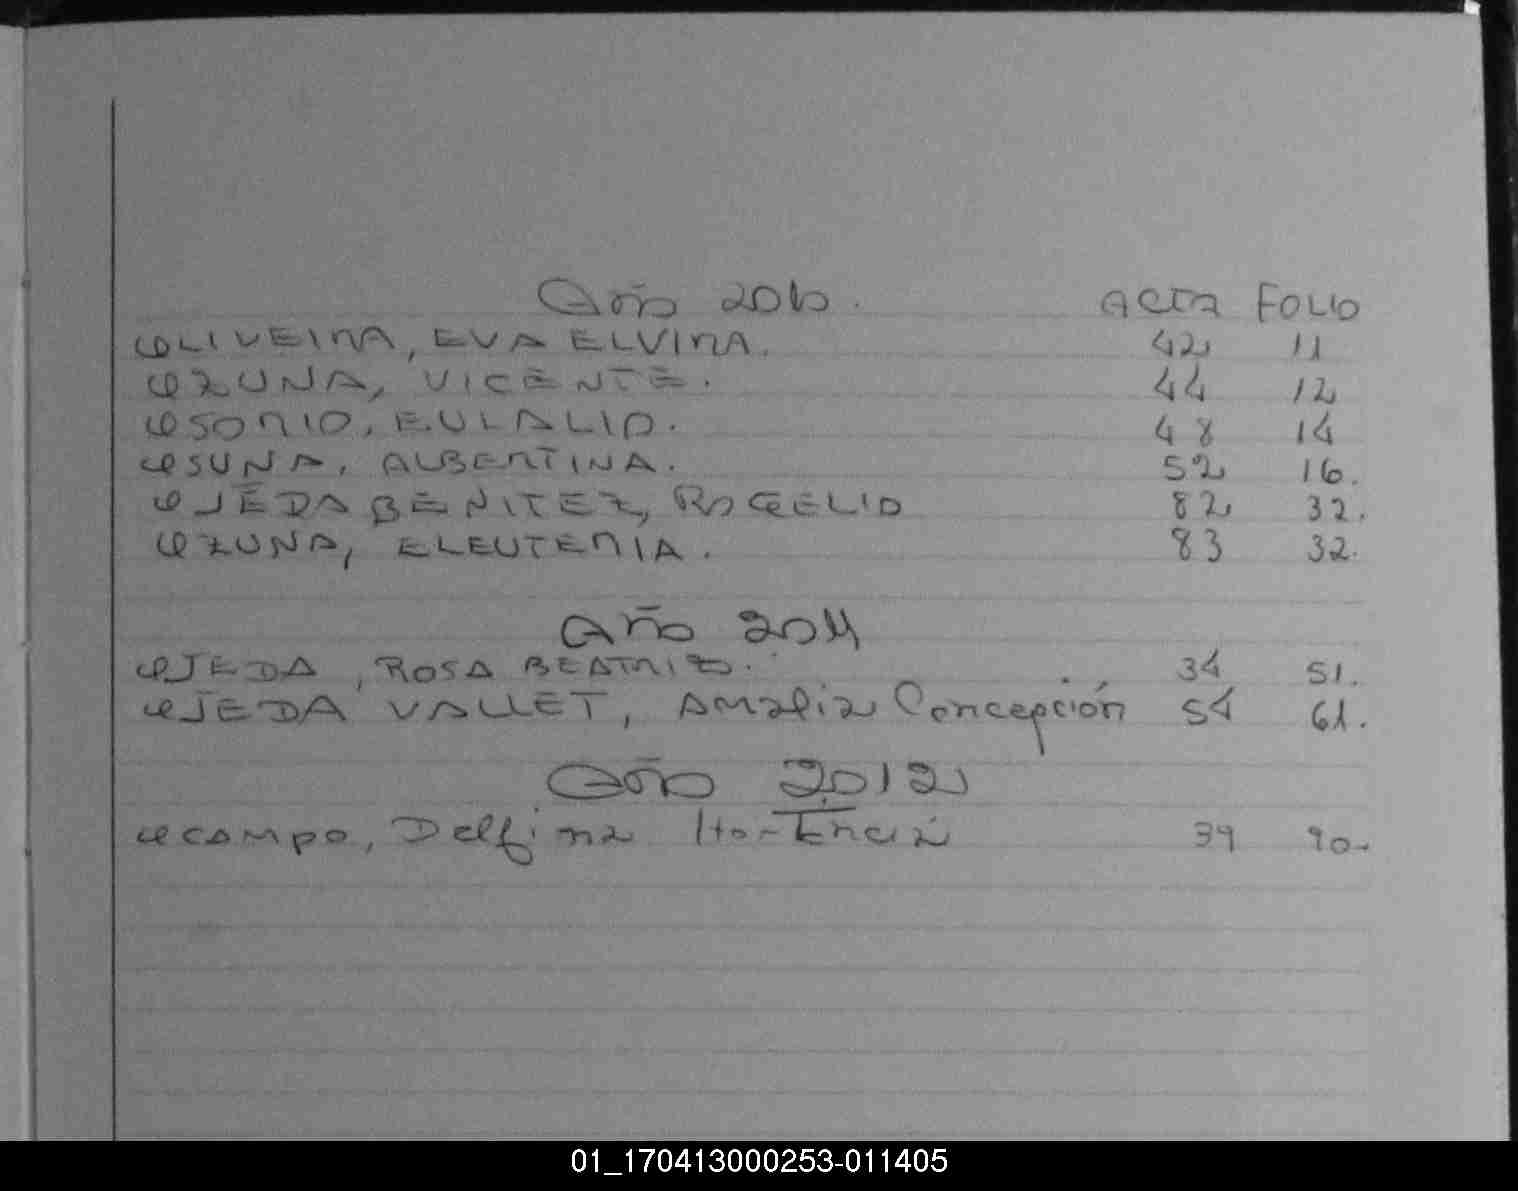 Año 2010. ACTA FOLIO
OLIVEIRA, EVA ELVIRA. 42 11
OZUNA, VICENTE. 44 12
OSORIO, EULALIO. 48 14
OSUNA, ALBERTINA. 52 16.
OJEDA BENITEZ, ROGELIO 82 32.
OZUNA, ELEUTERIA. 83 32.
Año 2011
OJEDA, ROSA BEATRIZ. 34 51.
OJEDA VALLET, Amalia Concepción 54 61.
Año 2012
Ocampo, Delfina Hortencia 39 90-
01_170413000253-011405